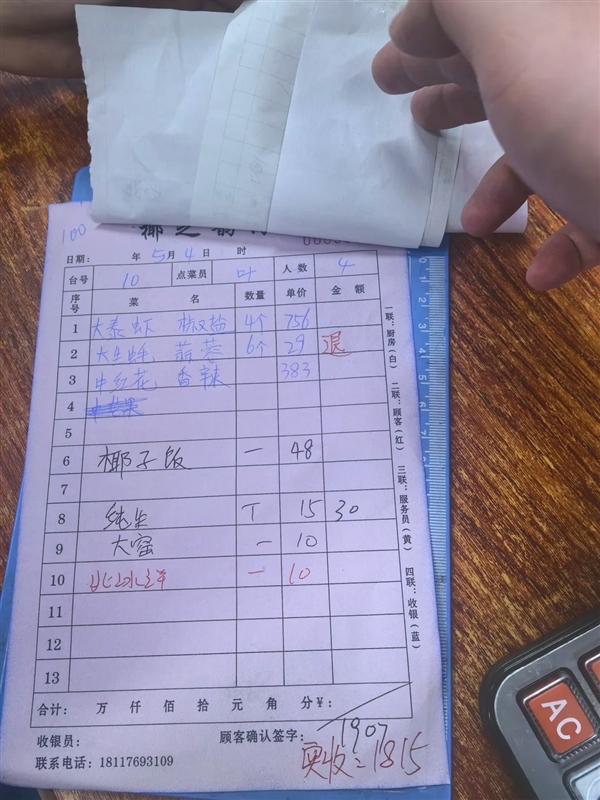 100
日期： 年 5 月 4 日 时
台号 10 点菜员 叶 人数 4
序号 菜 名 数量 单价 金 额
1 大泰虾 椒盐 4个 756
2 大生蚝 蒜蓉 6个 29 退
3 中红花 香辣 383
4
5
6 椰子饭 一 48
7
8 纯生 T 15 30
9 大窑 一 10
10 北冰洋 一 10
11
12
13
合计： 万 仟 佰 拾 元 角 分￥：
1907
收银员： 顾客确认签字：
实收：1815
联系电话：18117693109
一联：厨房（白） 二联：顾客（红） 三联：服务员（黄） 四联：收银（蓝）
0 1 2 3 4 5 6 7 8 9 10 11 12
AC